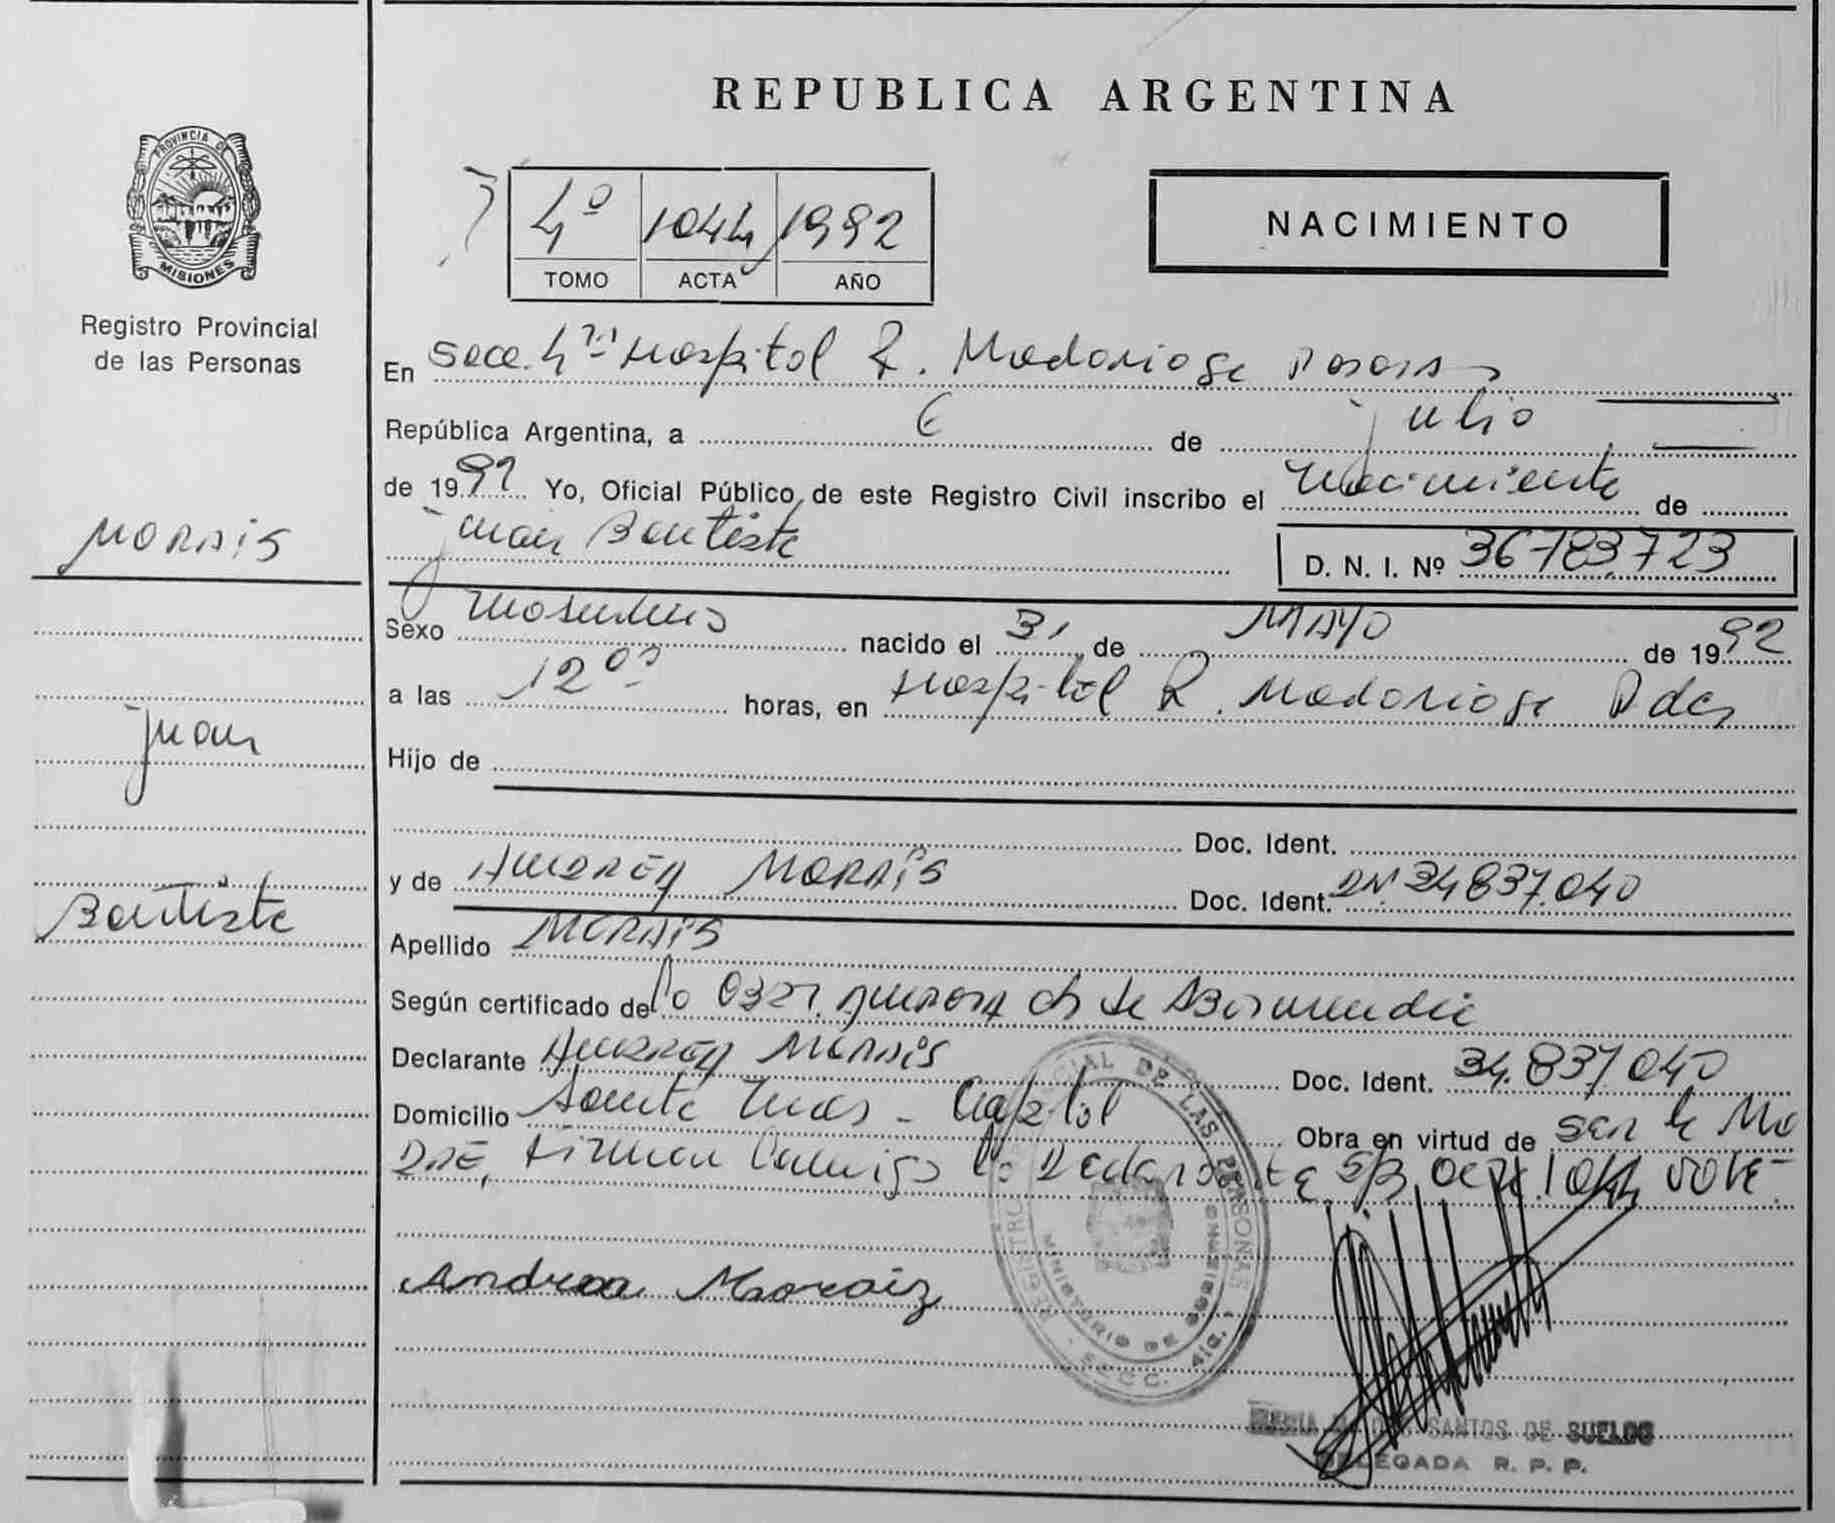 PROVINCIA DE
MISIONES
Registro Provincial
de las Personas
MORAIS
Juan
Bautista
REPUBLICA ARGENTINA
4º 1044 1992
TOMO ACTA AÑO
NACIMIENTO
En Secc. 4ta Hospital R. Madariaga Posadas
República Argentina, a 6 de julio
de 1992 Yo, Oficial Público de este Registro Civil inscribo el nacimiento de
Juan Bautista
D. N. I. Nº 36783723
Sexo masculino nacido el 31 de MAYO de 1992
a las 12 00 horas, en Hospital R. Madariaga Pdas
Hijo de
Doc. Ident.
y de ANDREA MORAIS Doc. Ident. DNI 34837.040
Apellido MORAIS
Según certificado de la Obst.
Declarante ANDREA MORAIS Doc. Ident. 34.837.040
Domicilio Santa Inés - Capital Obra en virtud de ser la Ma
DRE, Firman Conmigo la Declarante S/B. acta 1044 VALE-
Andrea Moraiz
REGISTRO PROVINCIAL DE LAS PERSONAS
MINISTERIO DE
SANTOS DE SUELOS
DELEGADA R. P. P.